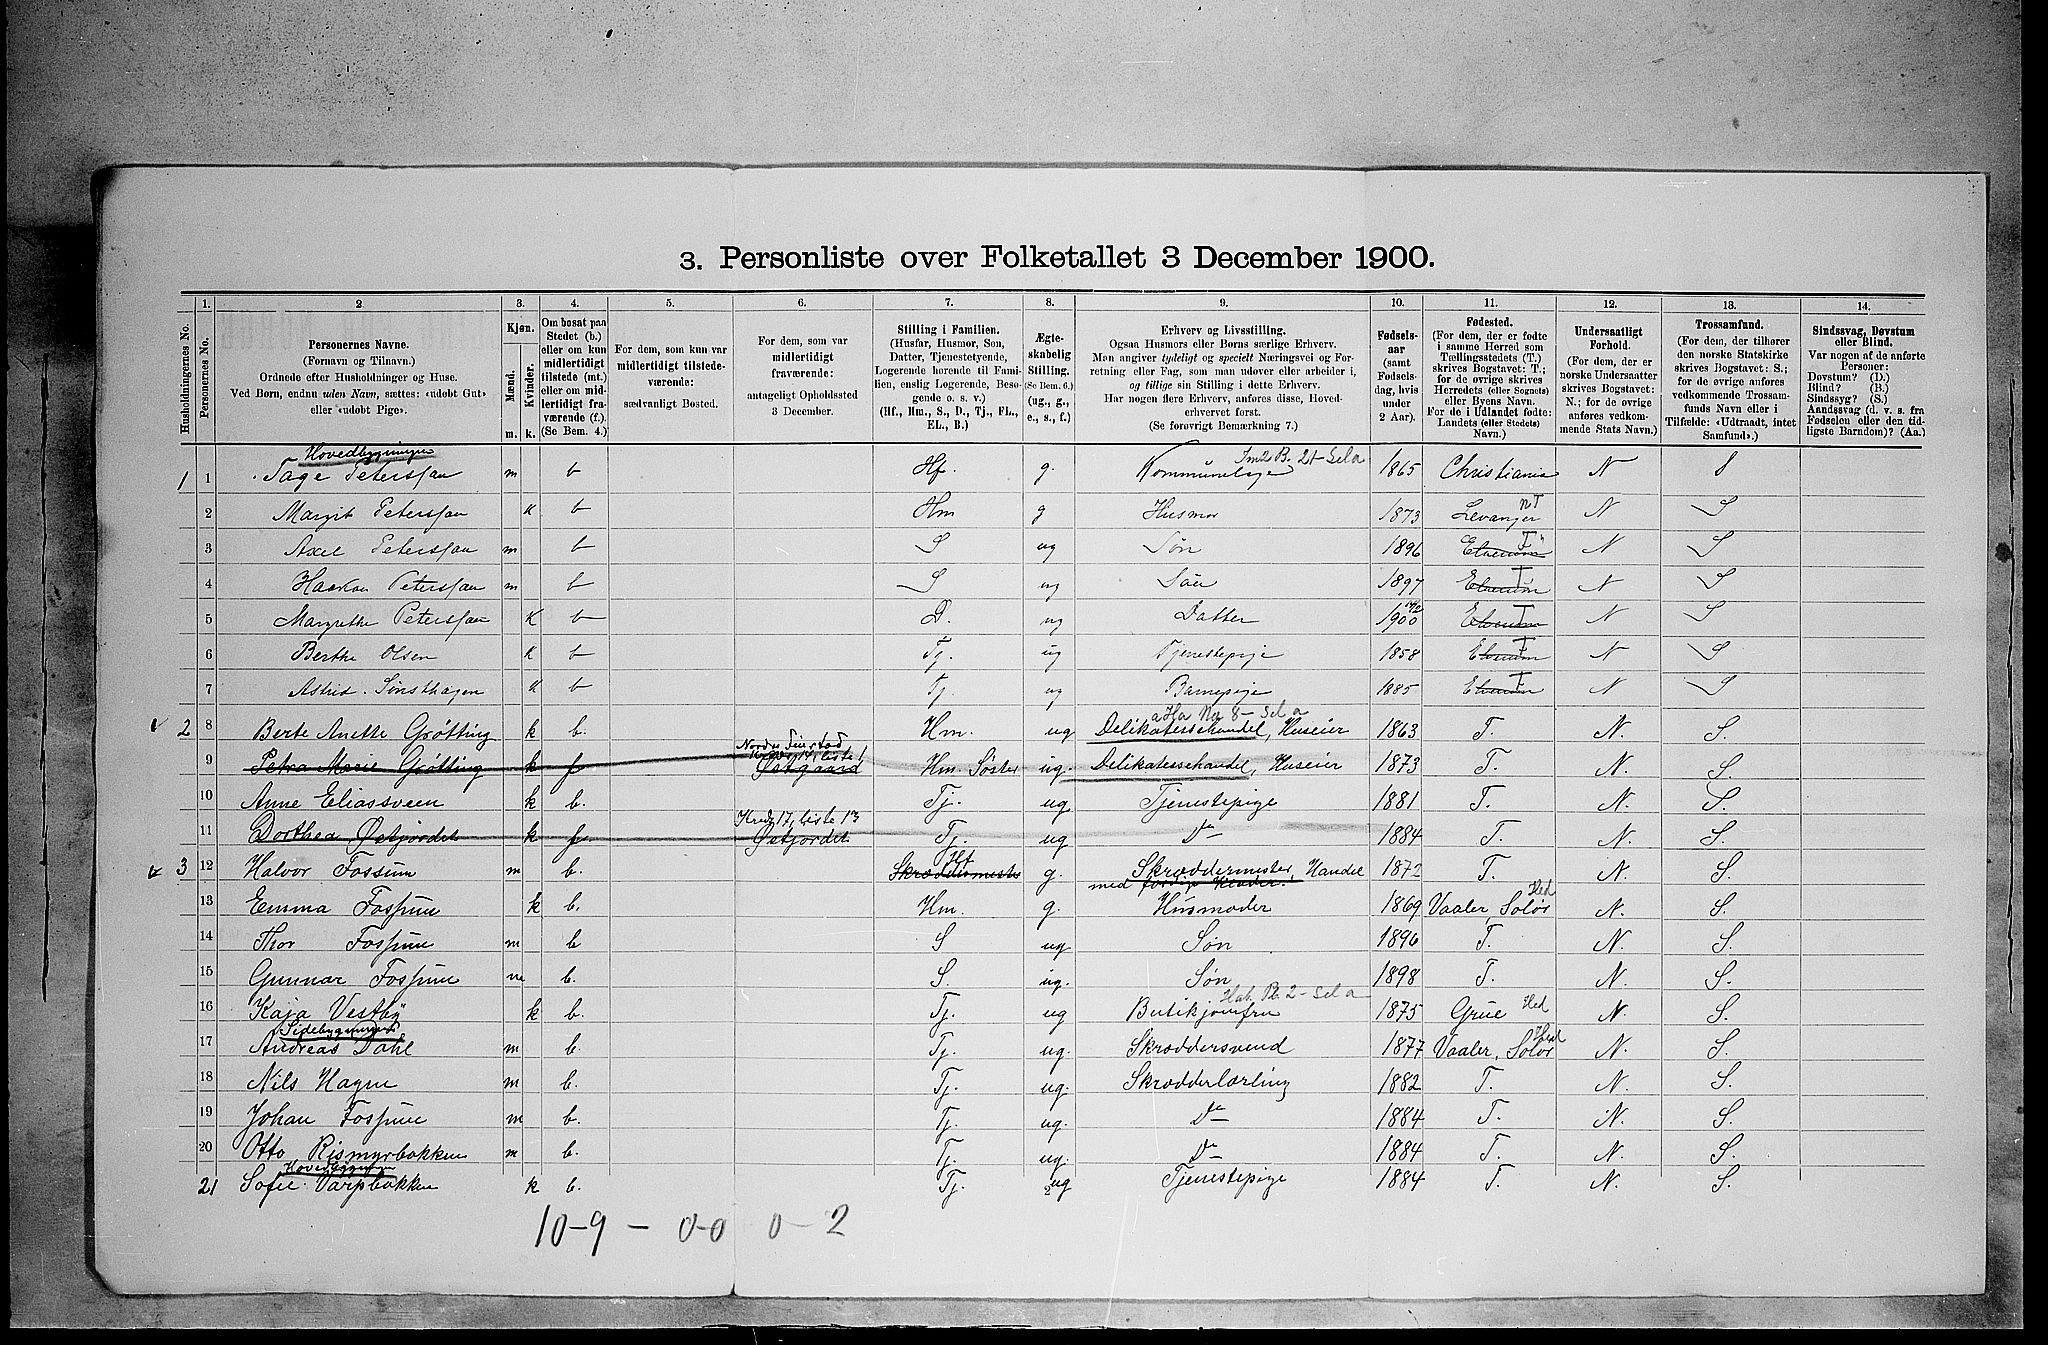 3. Personliste over Folketallet 3 December 1900.
Husholdningernes No.
1.
Personernes No.
2.
Personernes Navne.
(Fornavn og Tilnavn.)
Ordnede efter Husholdninger og Huse.
Ved Børn, endnu uden Navn, sættes: «udøbt Gut»
eller «udøbt Pige».
3.
Kjøn.
Mænd.
Kvinder.
m.
k.
4.
Om bosat paa
Stedet (b.)
eller om kun
midlertidigt
tilstede (mt.)
eller om mid-
lertidigt fra-
værende (f.)
(Se Bem. 4.)
5.
For dem, som kun var
midlertidigt tilstede-
værende:
sædvanligt Bosted.
6.
For dem, som var
midlertidigt
fraværende:
antageligt Opholdssted
3 December.
7.
Stilling i Familien.
(Husfar, Husmor, Søn,
Datter, Tjenestetyende,
Logerende hørende til Fami-
lien, enslig Logerende, Besø-
gende o. s. v.)
(Hf., Hm., S., D., Tj., FL.,
EL., B.)
8.
Ægte-
skabelig
Stilling.
(Se Bem. 6.)
(ug., g.,
e., s., f.)
9.
Erhverv og Livsstilling.
Ogsaa Husmors eller Børns særlige Erhverv.
Man angiver tydeligt og specielt Næringsvei og For-
retning eller Fag, som man udøver eller arbeider i,
og tillige sin Stilling i dette Erhverv.
Har nogen flere Erhverv, anføres disse, Hoved-
erhvervet først.
(Se forøvrigt Bemærkning 7.)
10.
Fødsels-
aar
(samt
Fødsels-
dag, hvis
under
2 Aar).
11.
Fødested.
(For dem, der er fødte
i samme Herred som
Tællingsstedets (T.)
skrives Bogstavet: T.;
for de øvrige skrives
Herredets (eller Sognets)
eller Byens Navn.
For de i Udlandet fødte:
Landets (eller Stedets)
Navn.)
12.
Undersaatligt
Forhold.
(For dem, der er
norske Undersaatter
skrives Bogstavet:
N.; for de øvrige
anføres vedkom-
mende Stats Navn.)
13.
Trossamfund.
(For dem, der tilhører
den norske Statskirke
skrives Bogstavet: S.;
for de øvrige anføres
vedkommende Trossam-
funds Navn eller i
Tilfælde: «Udtraadt, intet
Samfund».)
14.
Sindssvag, Døvstum
eller Blind.
Var nogen af de anførte
Personer:
Døvstum? (D.)
Blind? (B.)
Sindssyg? (S.)
Aandssvag (d. v. s. fra
Fødselen eller den tid-
ligste Barndom)? (Aa.)
Hovedbygningen
1 1 Tage Peterssen m b Hf. g. Kommunelæge 1865 Christiania N S
2 Margit Peterssen k b Hm g Husmor 1873 Levanger nT N S
3 Axel Peterssen m b S ug Søn 1896 Elverum T N S
4 Haakon Peterssen m b S ug Søn 1897 Elverum T N S
5 Margrethe Peterssen K b D. ug Datter 1900 Elverum T N S
6 Berthe Olsen k b Tj. ug Tjenestepige 1858 Elverum T N S
7 Astrid Sønsthagen K b Tj. ug Barnepige 1885 Elverum T N S
2 8 Berte Anette Grøtting k b. Hm. ug Delikatessehandel, Huseier 1863 T. N. S.
9 Petra Marie Grøtting k f Østgaard Hm. Søster ug. Delikatessehandel, Huseier 1873 T. N. S.
10 Anne Eliassveen k b. Tj. ug Tjenestepige 1881 T. N. S.
Kreds 17, liste 13
11 Dorthea Østfjordet k f. Østfjordet Tj. ug Do 1884 T. N. S.
3 12 Halvor Fossum m b. Skræddermester Hf g. Skræddermester, Handel 1872 T. N. S.
med færdige Klæder.
13 Emma Fossum k b. Hm. g. Husmoder 1869 Vaaler, Solør Hed N. S.
14 Thor Fossum m b S ug Søn 1896 T. N. S.
15 Gunnar Fossum m b. S. ug. Søn 1898 T. N. S.
16 Kaja Vestby k b. Tj. ug Butikjomfru 1875 Grue Hed N. S.
Sidebygningen
17 Andreas Dahl m b. Tj. ug. Skræddersvend 1877 Vaaler, Solør Hed N. S.
18 Nils Hagen m b. Tj. ug. Skrædderlærling 1882 T. N. S.
19 Johan Fossum m b. Tj. ug. Do 1884 T. N. S.
20 Otto Rismyrbakken m b. Tj. ug. Do 1884 T. N. S.
Hovedbygningen
21 Sofie Varpbakken k b. Tj. ug Tjenestepige 1884 T. N. S.
10-9 - 0-0 0-2